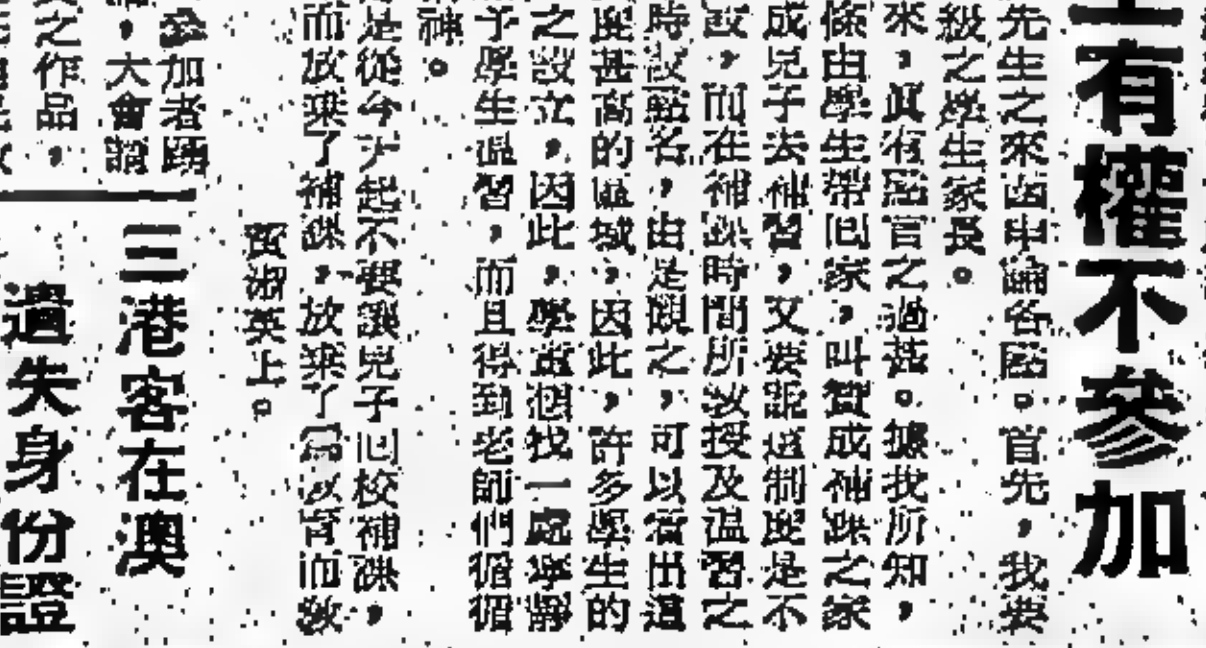 有權不參加
先生之來函中論各點。首先，我要
級之學生家長。
來，眞有點言之過甚。據我所知，
條由學生帶回家，叫贊成補課之家
成兒子去補習，又要說這制度是不
設，而在補課時間所敎授及温習之
時設點名，由是觀之，可以看出這
度甚高的區域，因此，許多學生的
之設立，因此，學童想找一處寧靜
予學生温習，而且得到老師們循循
神。
是從今才起不要讓兒子回校補課，
而放棄了補課，放棄了爲敎育而敎
賀淑英上。
參加者踴
，大會謂
之作品，
三港客在澳
遺失身份證